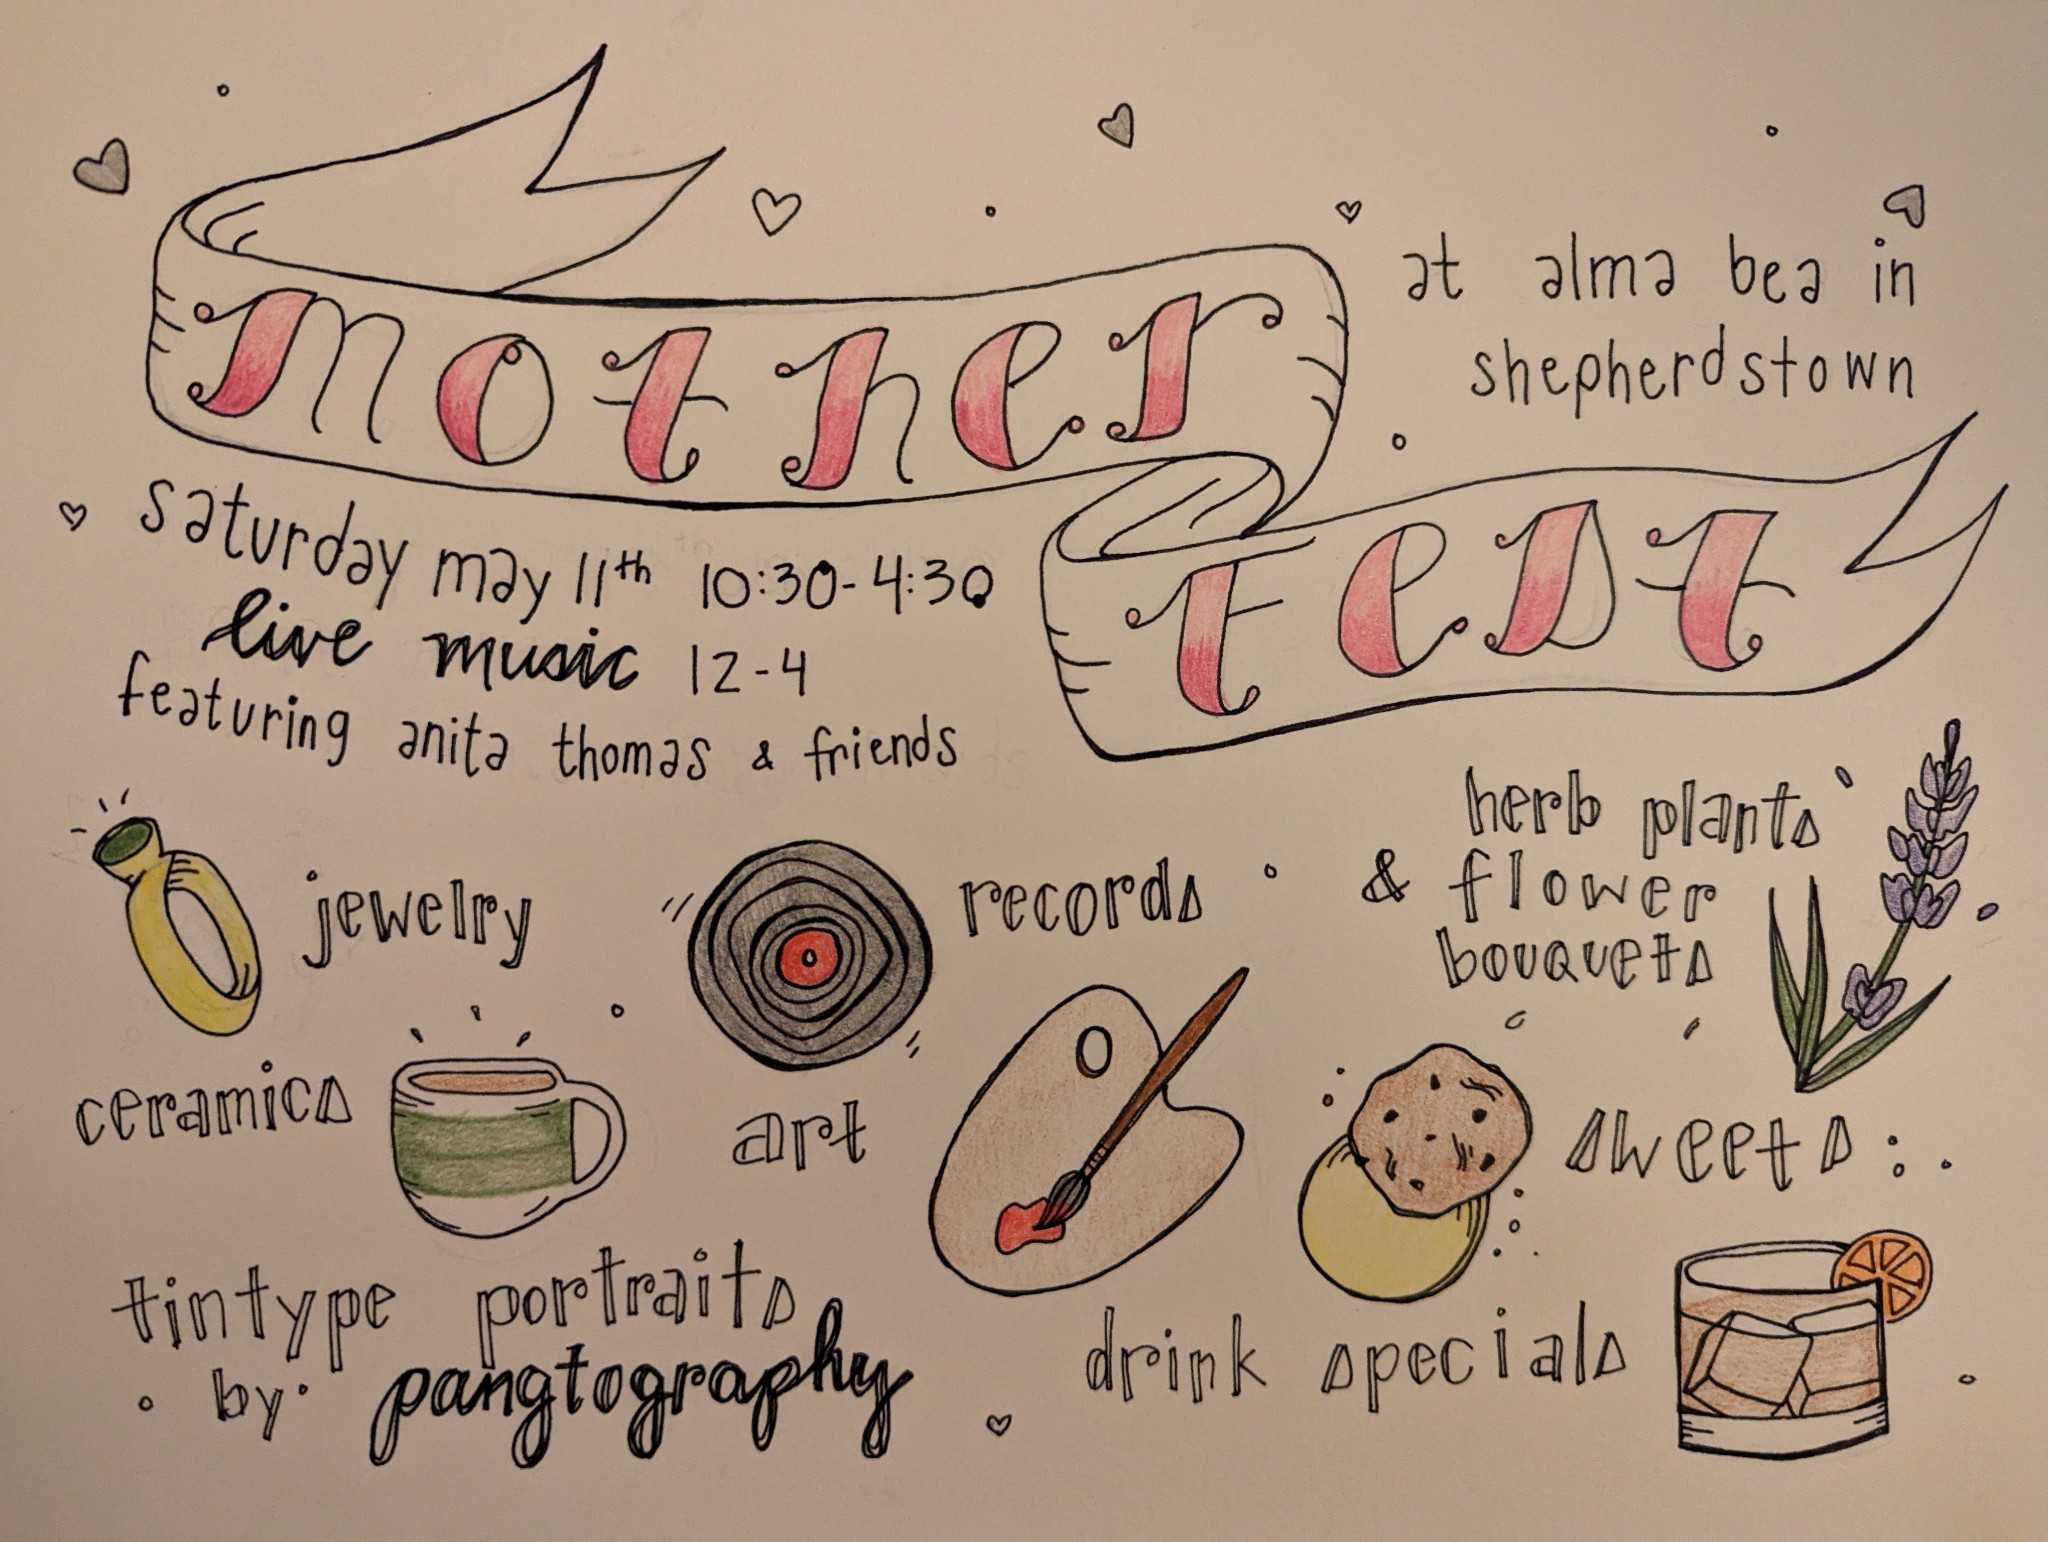 mother
fest
at alma bea in
shepherdstown
saturday may 11th 10:30-4:30
live music 12-4
featuring anita thomas & friends
jewelry
records
herb plants
& flower
bouquets
ceramics
art
sweets
tintype portraits
by: pangtography
drink specials